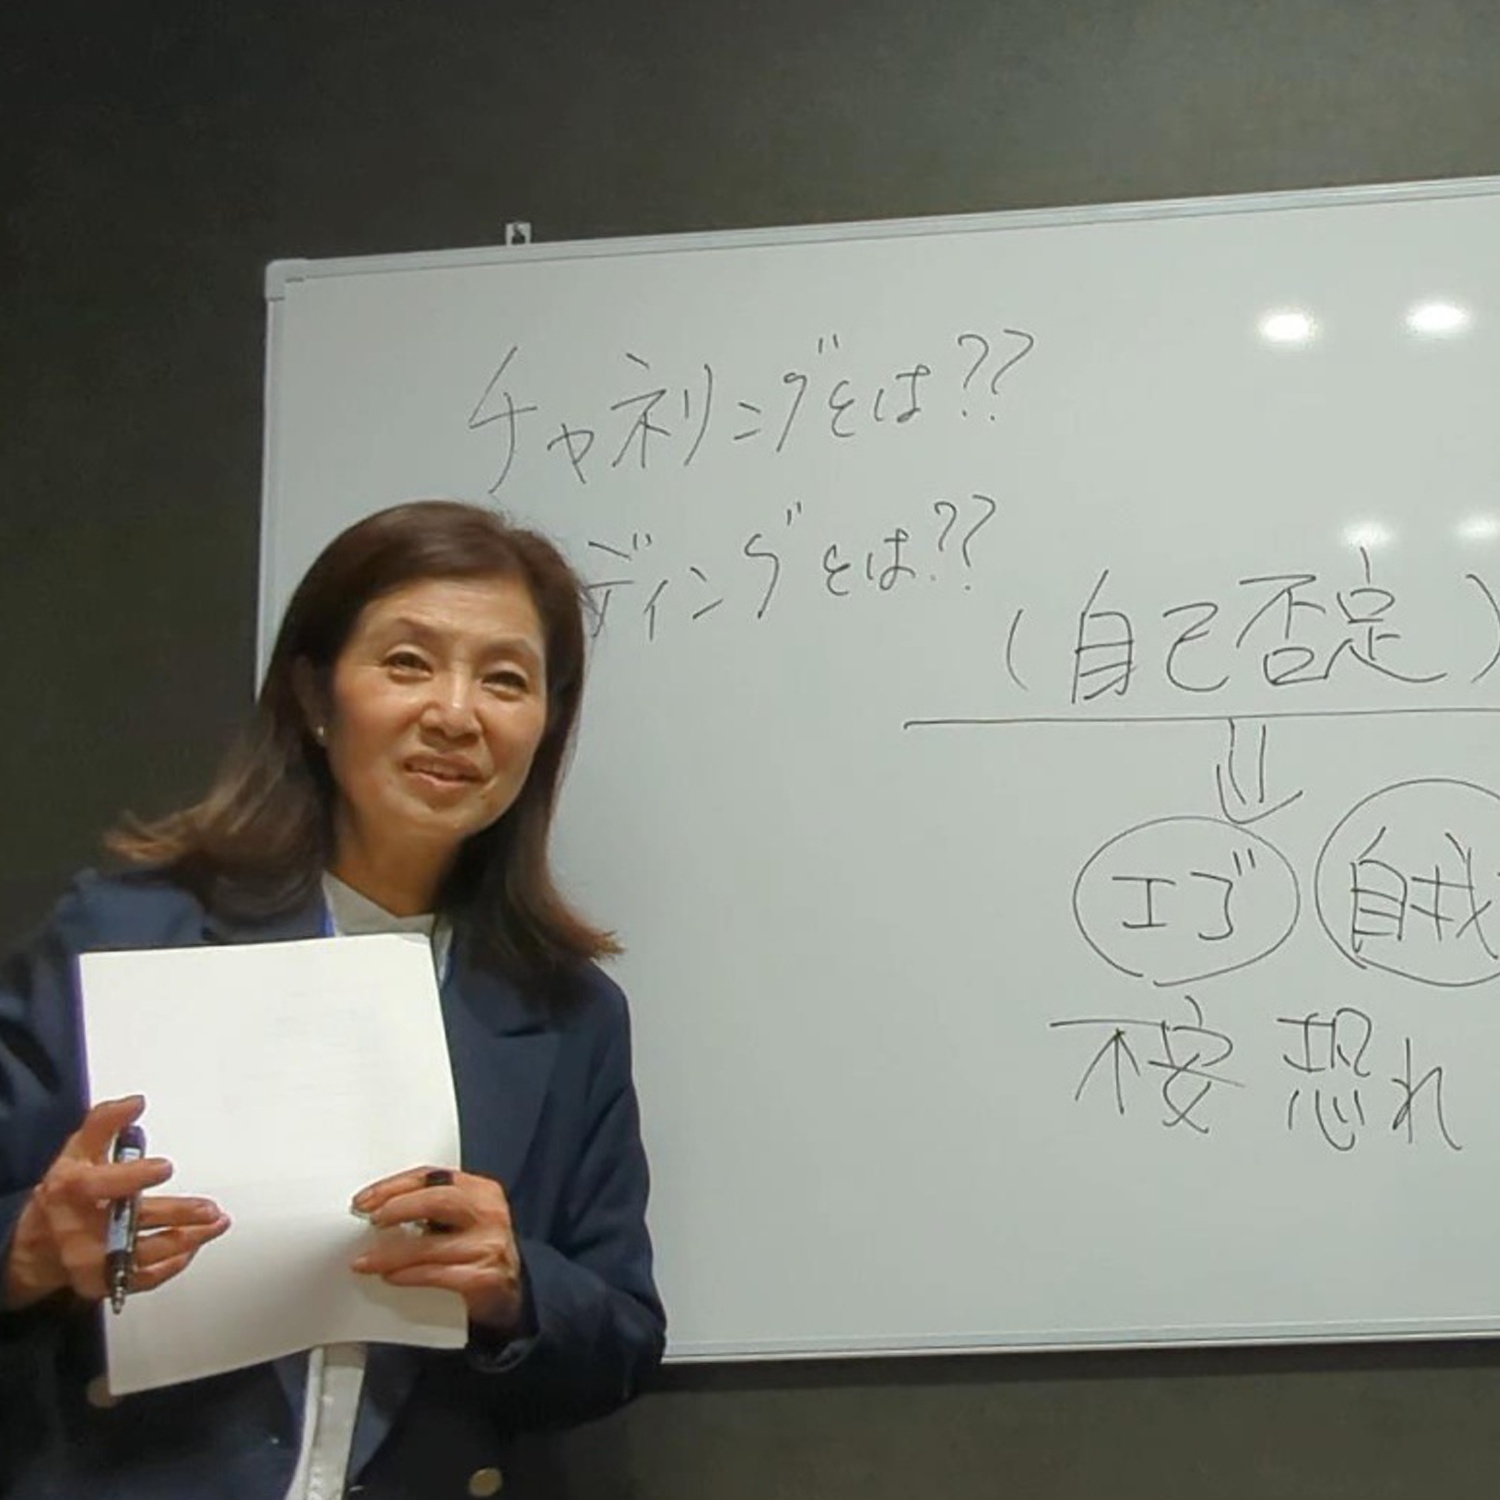 チャネリングとは??
ディングとは??
(自己否定)
エゴ 自我
不安 恐れ